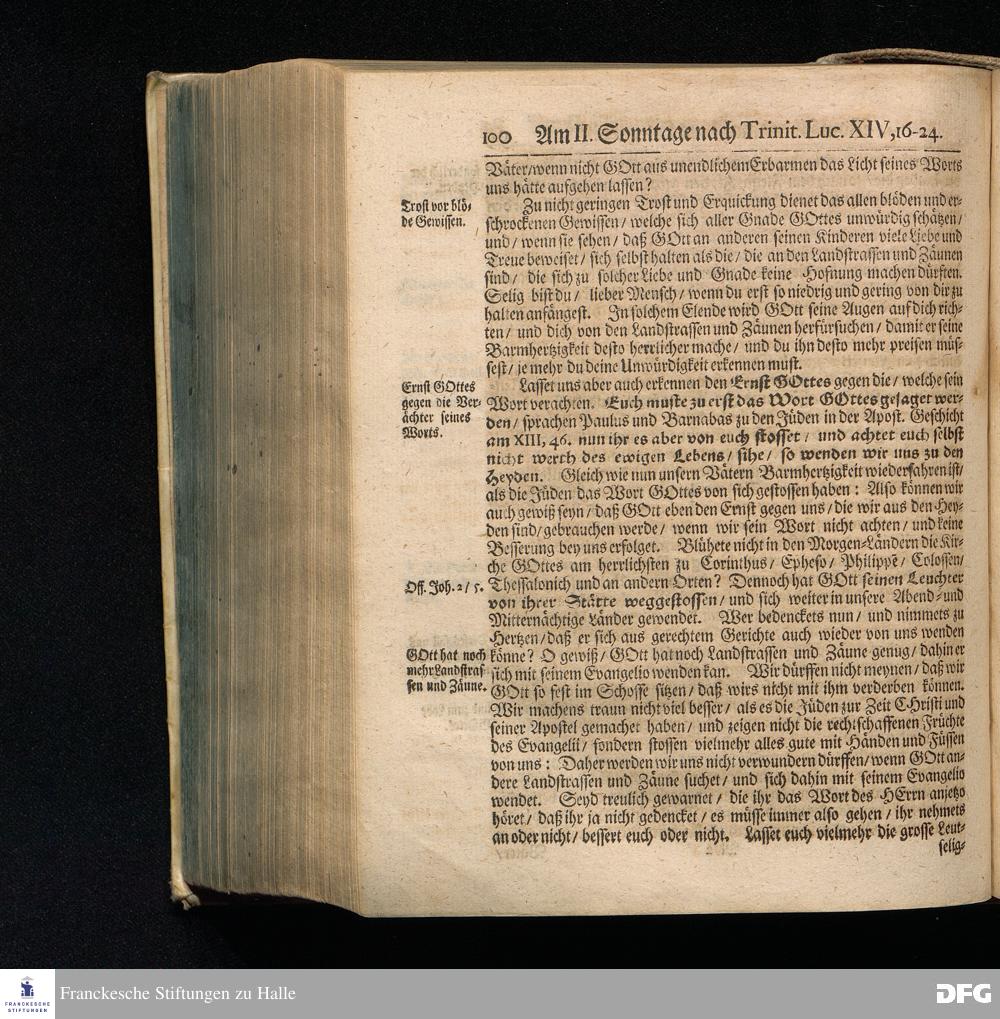 100 Am II. Sonntage nach Trinit. Luc. XIV, 16-24.
Väter/ wenn nicht GOtt aus unendlichem Erbarmen das Licht seines Worts
uns hätte aufgehen lassen?
Trost vor blö-
de Gewissen.
Zu nicht geringen Trost und Erquickung dienet das allen blöden und er-
schrockenen Gewissen/ welche sich aller Gnade GOttes unwürdig schätzen/
und/ wenn sie sehen/ daß GOtt an anderen seinen Kinderen viele Liebe und
Treue beweiset/ sich selbst halten als die/ die an den Landstrassen und Zäunen
sind/ die sich zu solcher Liebe und Gnade keine Hofnung machen dürften.
Selig bist du/ lieber Mensch/ wenn du erst so niedrig und gering von dir zu
halten anfängest. In solchem Elende wird GOtt seine Augen auf dich rich-
ten/ und dich von den Landstrassen und Zäunen herfürsuchen/ damit er seine
Barmhertzigkeit desto herrlicher mache/ und du ihn desto mehr preisen müs-
sest/ je mehr du deine Unwürdigkeit erkennen must.
Ernst GOttes
gegen die Ver-
ächter seines
Worts.
Lasset uns aber auch erkennen den Ernst GOttes gegen die/ welche sein
Wort verachten. Euch muste zu erst das Wort GOttes gesaget wer-
den/ sprachen Paulus und Barnabas zu den Jüden in der Apost. Geschicht
am XIII, 46. nun ihr es aber von euch stosset/ und achtet euch selbst
nicht werth des ewigen Lebens/ sihe/ so wenden wir uns zu den
Heyden. Gleich wie nun unsern Vätern Barmhertzigkeit wiederfahren ist/
als die Jüden das Wort GOttes von sich gestossen haben: Also können wir
auch gewiß seyn/ daß GOtt eben den Ernst gegen uns/ die wir aus den Hey-
den sind/ gebrauchen werde/ wenn wir sein Wort nicht achten/ und keine
Besserung bey uns erfolget. Blühete nicht in den Morgen-Ländern die Kir-
che GOttes am herrlichsten zu Corinthus/ Epheso/ Philippe/ Colossen/
Off. Joh. 2/ 5.
Thessalonich und an andern Orten? Dennoch hat GOtt seinen Leuchter
von ihrer Stätte weggestossen/ und sich weiter in unsere Abend- und
Mitternächtige Länder gewendet. Wer bedenckets nun/ und nimmets zu
Hertzen/ daß er sich aus gerechtem Gerichte auch wieder von uns wenden
GOtt hat noch
mehr Landstras-
sen und Zäune.
könne? O gewiß/ GOtt hat noch Landstrassen und Zäune genug/ dahin er
sich mit seinem Evangelio wenden kan. Wir dürffen nicht meynen/ daß wir
GOtt so fest im Schosse sitzen/ daß wirs nicht mit ihm verderben können.
Wir machens traun nicht viel besser/ als es die Jüden zur Zeit CHristi und
seiner Apostel gemachet haben/ und zeigen nicht die rechtschaffenen Früchte
des Evangelii/ sondern stossen vielmehr alles gute mit Händen und Füssen
von uns: Daher werden wir uns nicht verwundern dürffen/ wenn GOtt an-
dere Landstrassen und Zäune suchet/ und sich dahin mit seinem Evangelio
wendet. Seyd treulich gewarnet/ die ihr das Wort des HErrn anjetzo
höret/ daß ihr ja nicht gedencket/ es müsse immer also gehen/ ihr nehmets
an oder nicht/ bessert euch oder nicht. Lasset euch vielmehr die grosse Leut-
selig-
FRANCKESCHE
STIFTUNGEN
Franckesche Stiftungen zu Halle
DFG